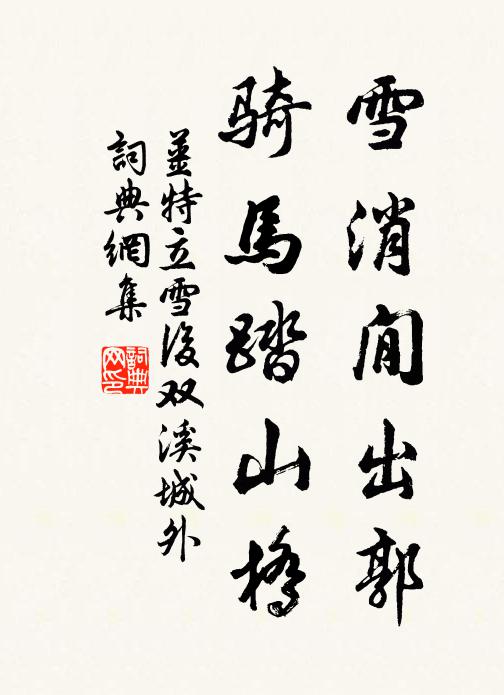 雪消閒出郭
騎馬踏山橋
薑特立雪後双溪城外
詞典網集
詞典网印